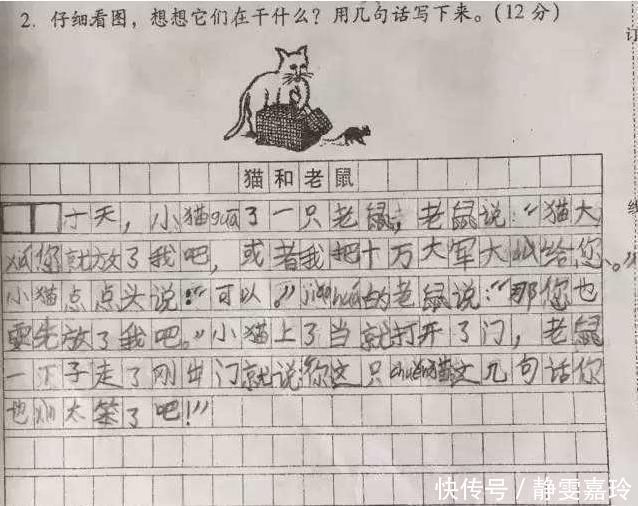 2. 仔细看图,想想它们在干什么?用几句话写下来。(12分)
订
猫和老鼠
线
十天,小猫gua了一只老鼠,老鼠说:“猫大
您就放了我吧,或者我把十万大军大给您、。”
小猫点点头说:“可以。”jiaohua的老鼠说:“那您也
要先放了我吧。”小猫上了当就打开了门,老鼠
一下子走了刚出门就说:你这只猫这几句话你
也太笨了吧!”
快传号/静雯嘉玲